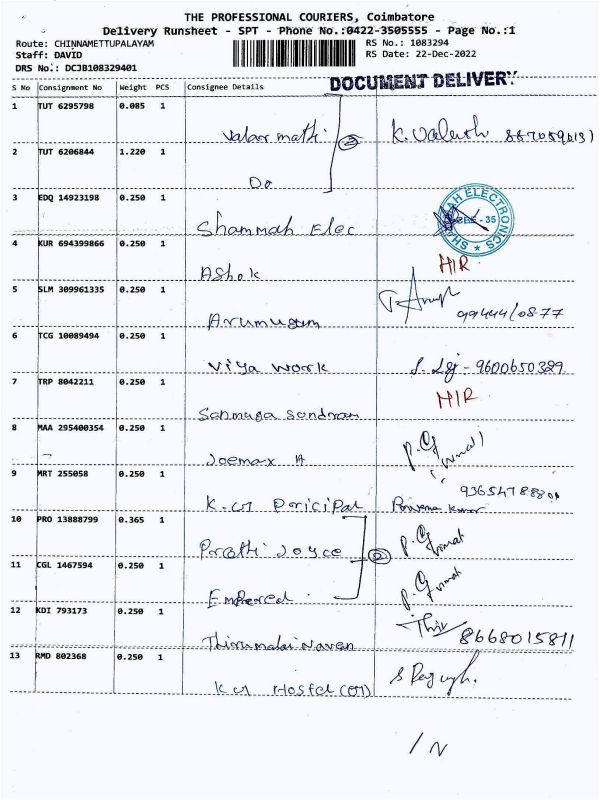 THE PROFESSIONAL COURIERS, Coimbatore
Delivery Runsheet - SPT - Phone No.:0422-3505555 - Page No.:1
Route: CHINNAMETTUPALAYAM RS No.: 1083294
Staff: DAVID RS Date: 22-Dec-2022
DRS No.: DCJB108329401
DOCUMENT DELIVERY
S No Consignment No Weight PCS Consignee Details
1 TUT 6295798 0.085 1
Valarmathi 2 K. 
2 TUT 6206844 1.220 1
Do
3 EDQ 14923198 0.250 1
Shammah Elec SHAMMAH ELECTRONICS CBE - 35
4 KUR 694399866 0.250 1
Ashok HIR
5 SLM 309961335 0.250 1
Arumugam 99444/0877
6 TCG 10089494 0.250 1
Viya work 9600650389
7 TRP 8042211 0.250 1
HIR
8 MAA 295400354 0.250 1
Joemax A
9 MRT 255058 0.250 1
10 PRO 13888799 0.365 1
Joyce 2
11 CGL 1467594 0.250 1
12 KDI 793173 0.250 1
8668015811
13 RMD 802368 0.250 1
Hostel
/ N